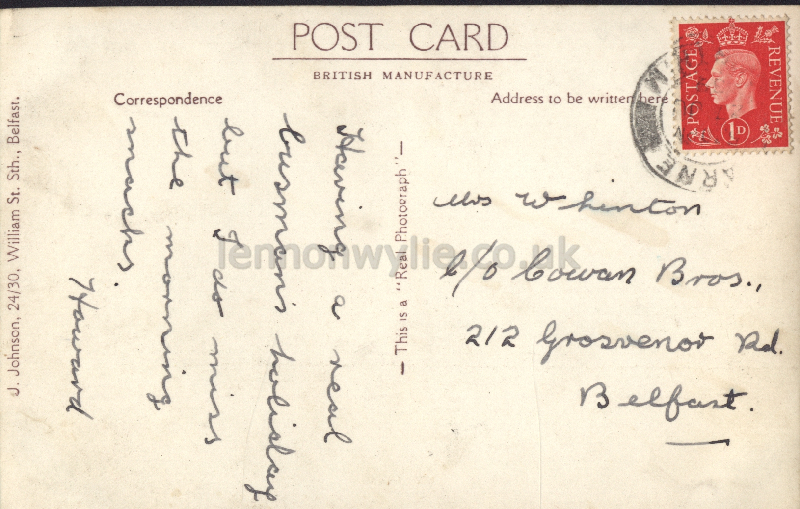 POST CARD
BRITISH MANUFACTURE
Correspondence
Address to be written here
POSTAGE
REVENUE
1D
ARNE
Having a real
busman's holiday
but I do miss
the morning
snacks.
Howard
Mrs Whinton
c/o Cowan Bros.,
212 Grosvenor Rd.
Belfast.
— This is a "Real Photograph" —
J. Johnson, 24/30, William St. Sth., Belfast.
lemonwylie.co.uk